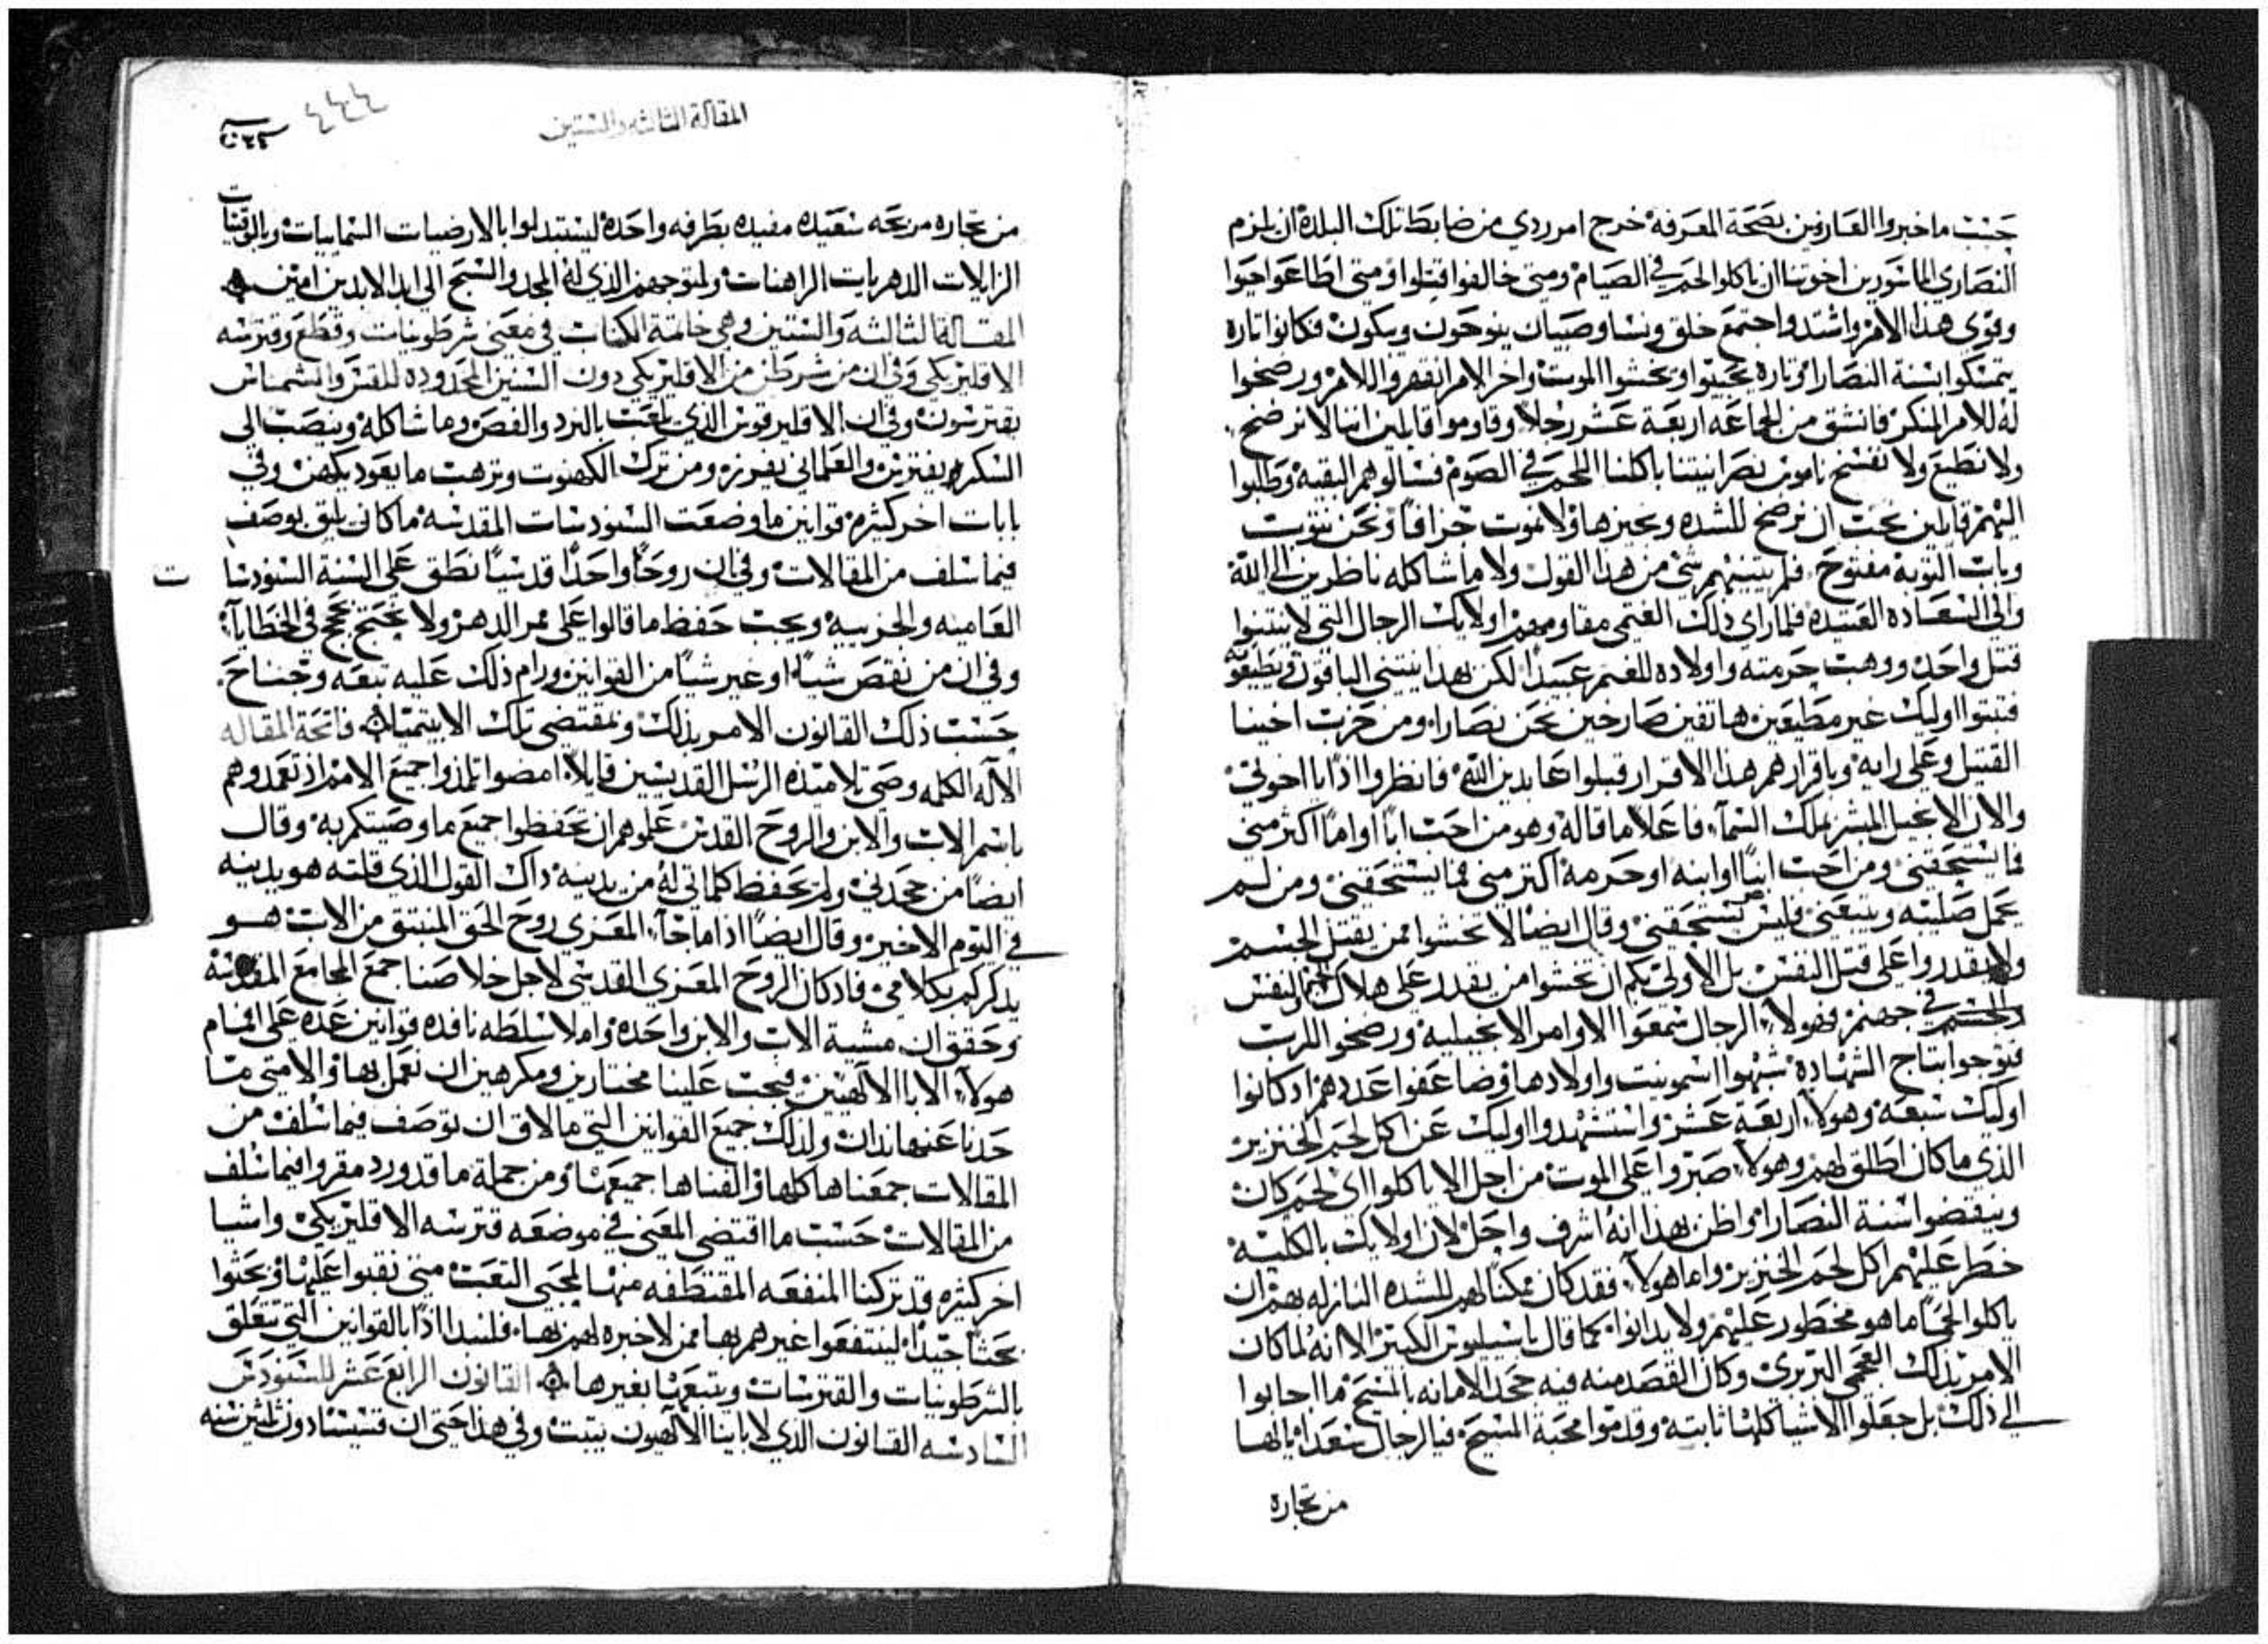 حسب ما خبروا العارفين بصحة المعرفه خرج امر ردي من ضابط تلك البلدة ان يلزم
النصاري الماسورين اخوتنا ان ياكلوا لحم في الصيام ومتي خالفوا قتلوا ومتي اطاعوا حيوا
وقوي هذا الامر واشتد واجتمع خلق ونسا وصبيان ينوحون ويبكون فكانوا تاره
يتمسكوا بسنة النصارا وتاره يجيبوا ويخشوا الموت واخر الامر انقهروا للامر ورضخوا
له للامر المنكر فانشق من الجماعه اربعة عشر رجلا وقاوموا قايلين اننا لا نرضخ
ولا نطيع ولا نفسخ ناموس نصرانيتنا باكلنا اللحم في الصوم فسالوهم البقيه وطلبوا
اليهم قايلين يجب ان نرضخ للشده ونجيزها ولا نموت جزافا ونحن نتوب
وباب التوبه مفتوح فلم يثنيهم شي من هذا القول ولا ما شاكله ناظرين الي الله
والي السعاده العتيده فلما راي ذلك الغتمي مقاومهم اولايك الرجال التي لا ينثنوا
قتل واحد ووهب حرمته واولاده للغتم عبيدا لكن بهذا ينثني الباقون ويطيعوه
فثبتوا اوليك غير مطيعين هاتفين صارخين نحن نصارا ومن حزب اخينا
القتيل وعلي رايه وباقرارهم هذا الاقرار قتلوا عابدين الله فانظروا اذا يا اخوتي
والان الانجيل المبشر بملك السما فاعلا ما قاله وهو من احب ابا او اما اكثر مني
فما يستحقني ومن احب ابنا او ابنه او حرمة اكتر مني فما يستحقني ومن لم
يحمل صليبه ويتبعني فليس يستحقني وقال ايضا لا تخشوا ممن يقتل الجسم
ولا يقدروا علي قتل النفس بل الاولي بكم ان تخشوا من يقدر علي هلاك النفس
والجسم في جهنم فهولاء الرجال سمعوا الاوامر الانجيليه ورضخوا للرب
فتوجوا بتاج الشهادة شبهوا اسمونيت واولادها وضاعفوا عددهم اد كانوا
اوليك سبعة وهولاء اربعة عشر واستشهدوا اوليك عن اكل لحم الخنزير
الذي ما كان اطلق لهم وهولاء صبروا علي الموت من اجل الا ياكلوا اي لحم كان
وينقضوا سنة النصارا واظن بهذا انه اشرف واجل لان اولايك بالكلية
خطر عليهم اكل لحم الخنزير واما هولاء فقد كان ممكنا لهم للشده النازله بهم ان
ياكلوا لحما ما هو محظور عليهم ولا يدانوا كما قال باسيليوس الكبير الا انه لما كان
الامر بذلك العجمي البربري وكان القصد منه فيه جحد الامانه بالمسيح ما اجابوا
الي ذلك بل جعلوا الاشيا كلها ثابته وقدموا محبة المسيح فيا لرجال سعدا يا لها
من تجاره
المقالة الثالثه والستين
٤٤٤
من تجاره مربحه سعيده مفيده بطرفه واحدة ليستبدلوا بالارضيات السماييات وبالوقتيات
الزايلات الدهريات الراهنات ولمتوجهم الذي له المجد والتسبيح الي ابد الابدين امين
المقالة الثالثه والستين وهي خاتمة الكتاب في معني شرطونيات وقطع وقترسه
الاقليريكي وفي ان من شرطن من الاقليريكي دون السنين المحدوده للقس والشماس
يقترسون وفي ان الاقليرقوس الذي يلعب بالنرد والفص وما شاكله وينصب الي
السكر يقترس والعلماني يفرز ومن ترك الكهنوت وترهب ما يعود يكهن وفي
بابات اخر كثيره قوانين ما وضعت السنودسات المقدسه ما كان يليق بوصف
فيما سلف من المقالات وفي ان روحا واحدا قدسيا نطق علي السنة السنودسات
العاميه والجزييه ويجب حفظ ما قالوا علي ممر الدهر ولا يحتج بحجج في الخطايا
وفي ان من نقص شيا او غير شيا من القوانين ورام ذلك عليه تبعه وجناح
حسب ذلك القانون الامر بذلك ومقتضي تلك الابيتميات فاتحة المقاله
الاله الكلمه وصي تلامتده الرسل القديسين قايلا امضوا تلمذوا جميع الامم اذ تعمدوهم
باسم الاب والابن والروح القدس علموهم ان يحفظوا جميع ما وصيتكم به وقال
ايضا من جحدني ولم يحفظ كلماتي له من يدينه داك القول الذي قلته هو يدينه
في اليوم الاخير وقال ايضا اذا ما جاء المعزي روح الحق المنبتق من الاب هو
يدكركم بكلامي فاد كان الروح المعزي القدسي لاجل خلاصنا جمع المجامع المقدسة
وحقق ان مشية الاب والابن واحدة واملا سلطه نافده قوانين عده علي افمام
هولاء الابا الالهيين فيجب علينا مختارين ومكرهين ان نعمل بها والا متي ما
حدنا عنها ندان ولذلك جميع القوانين التي ما لاق ان توصف فيما سلف من
المقالات جمعناها كلها والفناها جميعها ومن جملة ما قد ورد مقروا فيما سلف
من المقالات حسب ما اقتضي المعني في موضعه قترسه الاقليريكي واشيا
اخر كثيره قد تركنا المنفعه المقتطفه منها لمحبي التعب متي نقبوا عليها وبحثوا
بحثا جيدا لينتفعوا غيرهم بها ممن لا خبره لهم بها فلنبدا اذا بالقوانين التي تتعلق
بالشرطونيات والقترسات ونتبعها بغيرها القانون الرابع عشر للسنودس
السادسه القانون الذي لاباينا الالهيون يثبت وفي هذا حتي ان قسيسا دون ثلثين سنه